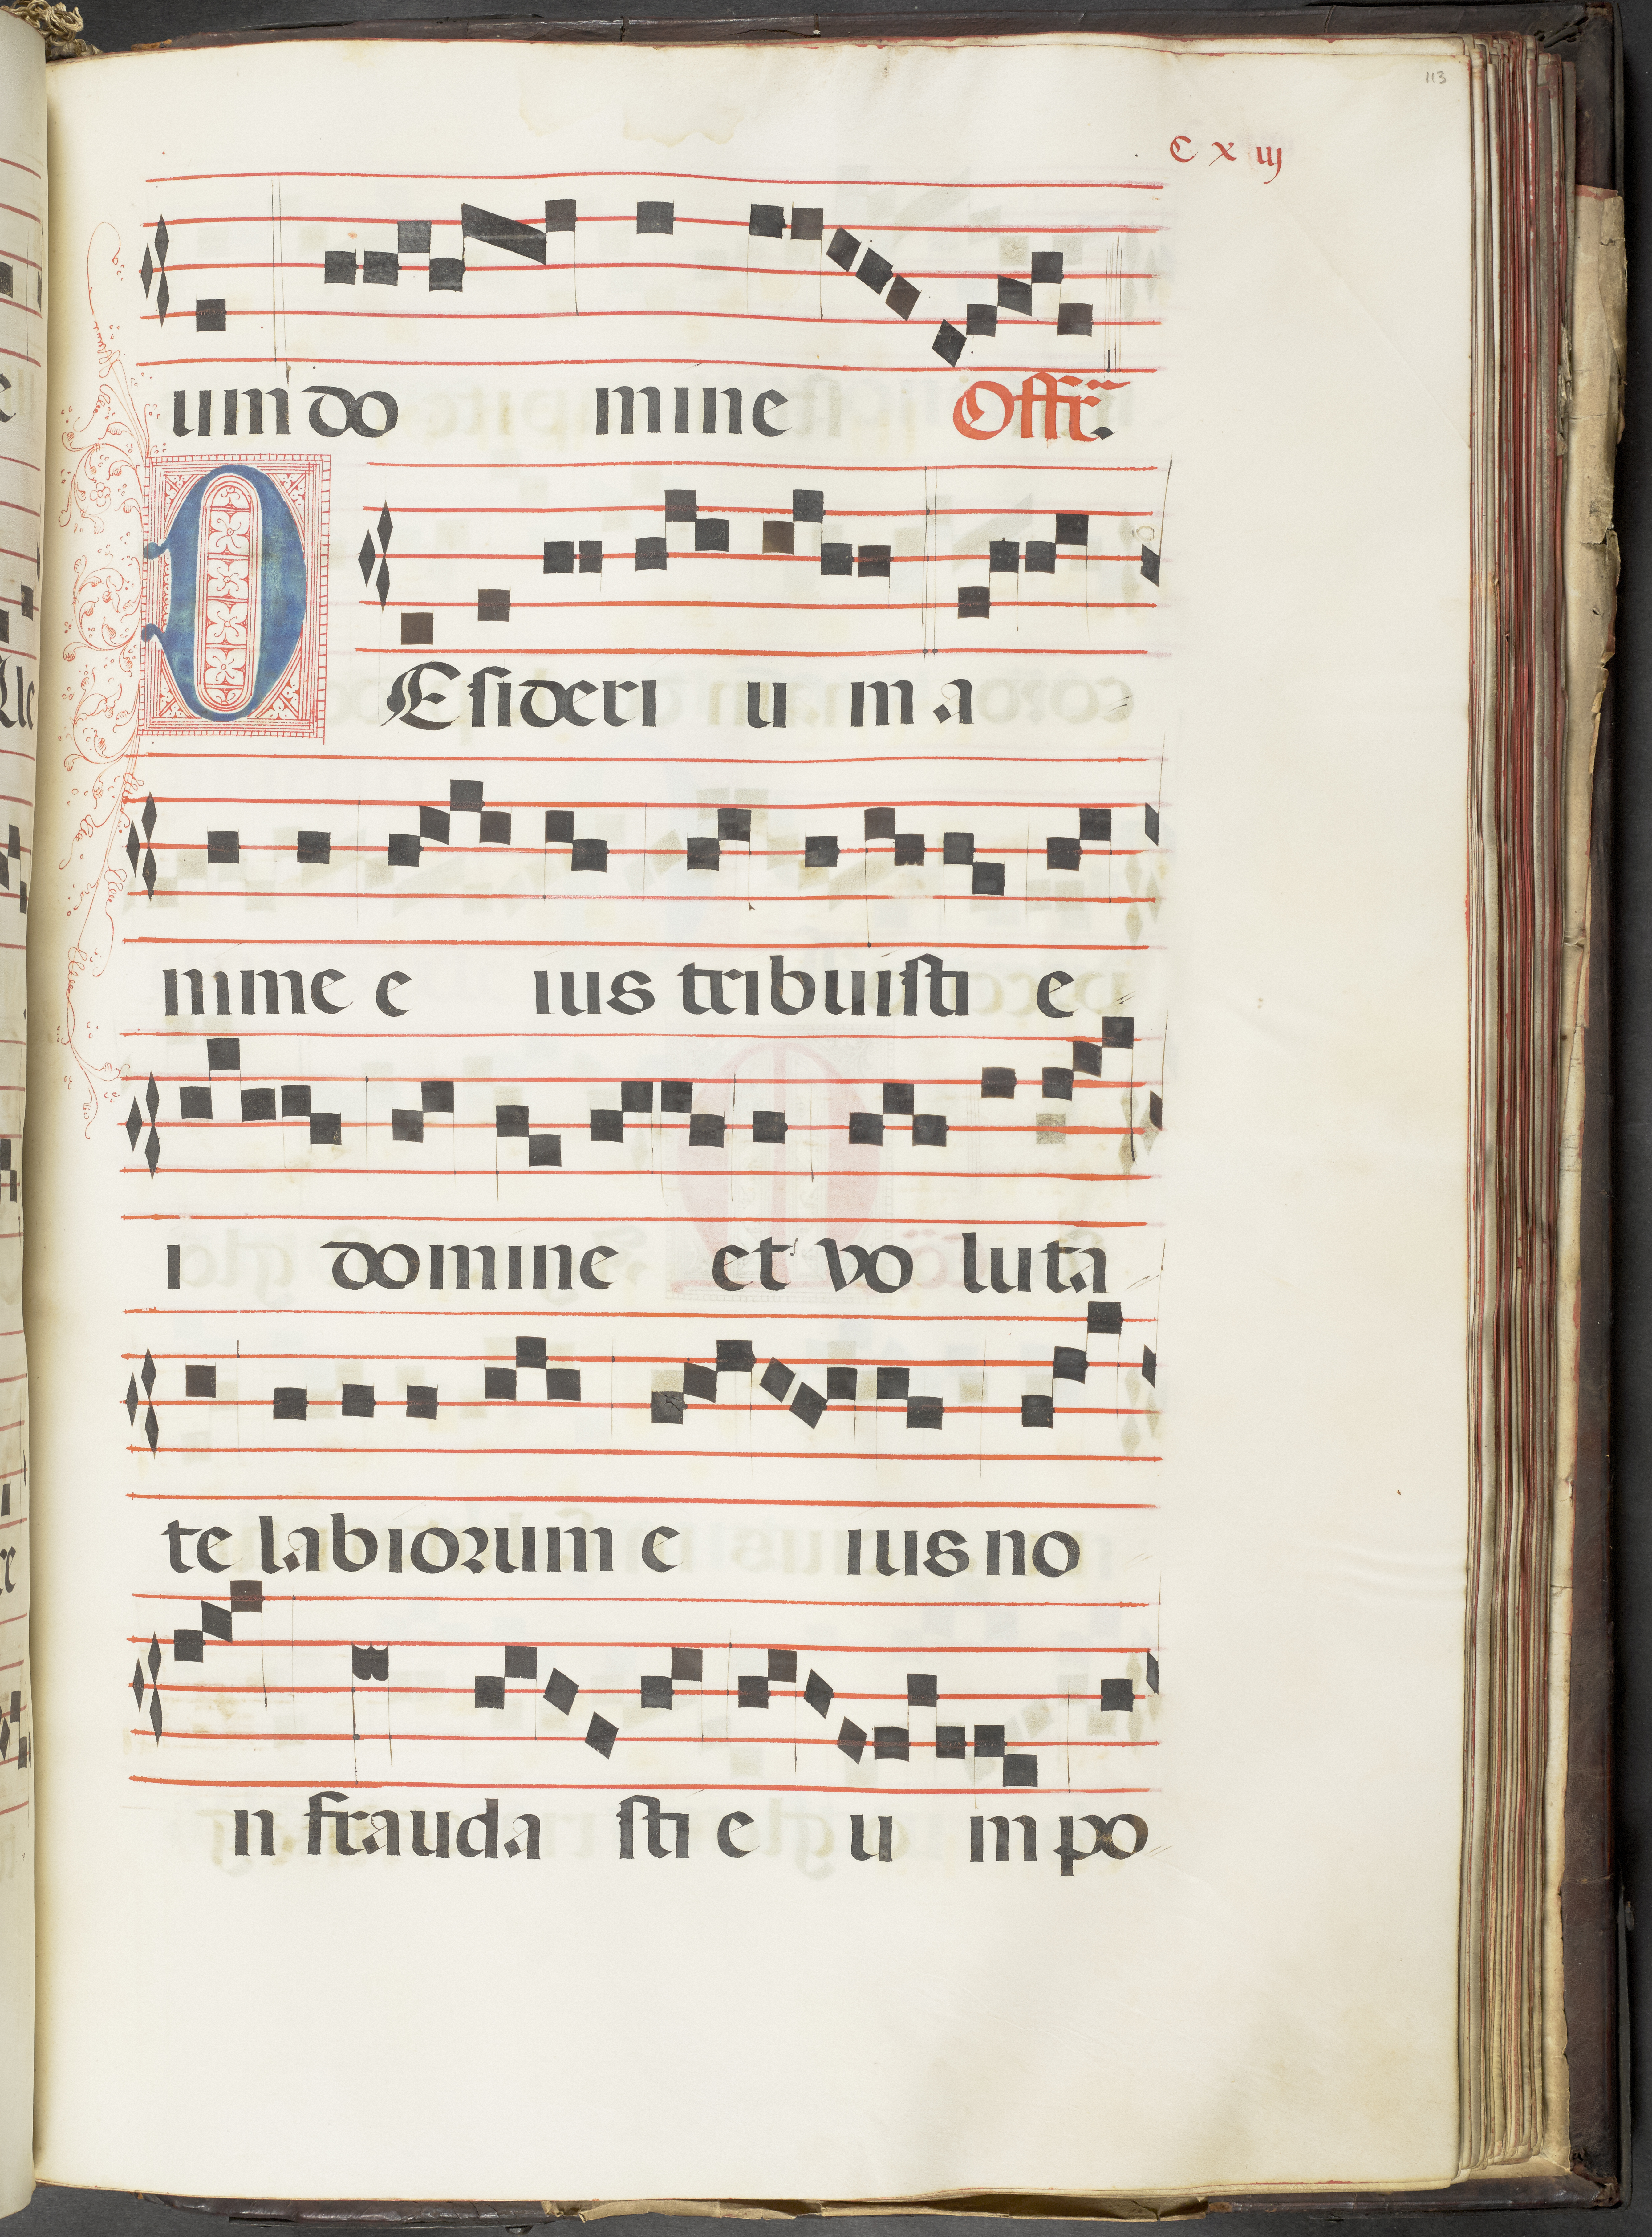 113
C x iij
um do mine Offr̃.
DEsideri u m a
nime e ius tribuisti e
i domine et vo luta
te labiorum e ius no
n frauda sti e u m po